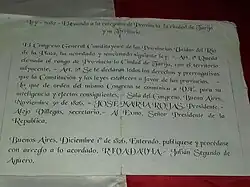 Ley - Sala - Elevando a la categoría de Provincia, la ciudad de Tarija
y su Territorio.
El Congreso General Constituyente de las Provincias Unidas del Río
de la Plata, ha acordado y sancionado siguiente ley: - Art. 1º Queda
elevada al rango de Provincia la Ciudad de Tarija, con el territorio
adyacente. - Art. 2º Se le declaran todos los derechos y prerrogativas
que la Constitución y las leyes establecen a favor de las provincias. -
Lo que de orden del mismo Congreso se comunica a V.E. para su
inteligencia y efectos consiguientes. - Sala del Congreso, Buenos Aires,
Noviembre 30 de 1826. - JOSE MARIA ROJAS, Presidente. -
Alejo Villegas, secretario. - Al Exmo. Señor Presidente de la
República.
Buenos Aires, Diciembre 1º de 1826. Entérado, publíquese y procédase
con arreglo a lo acordado. RIVADAVIA - Julián Segundo de
Agüero.